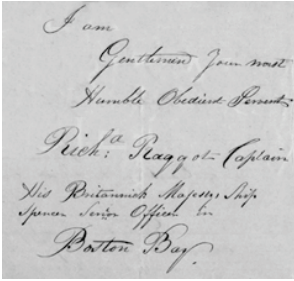 I am
Gentlemen Your most
Humble Obedient Servant
Rich:ᵈ Raggot Captain
His Britannick Majestys Ship
Spencer Senior Officer in
Boston Bay.